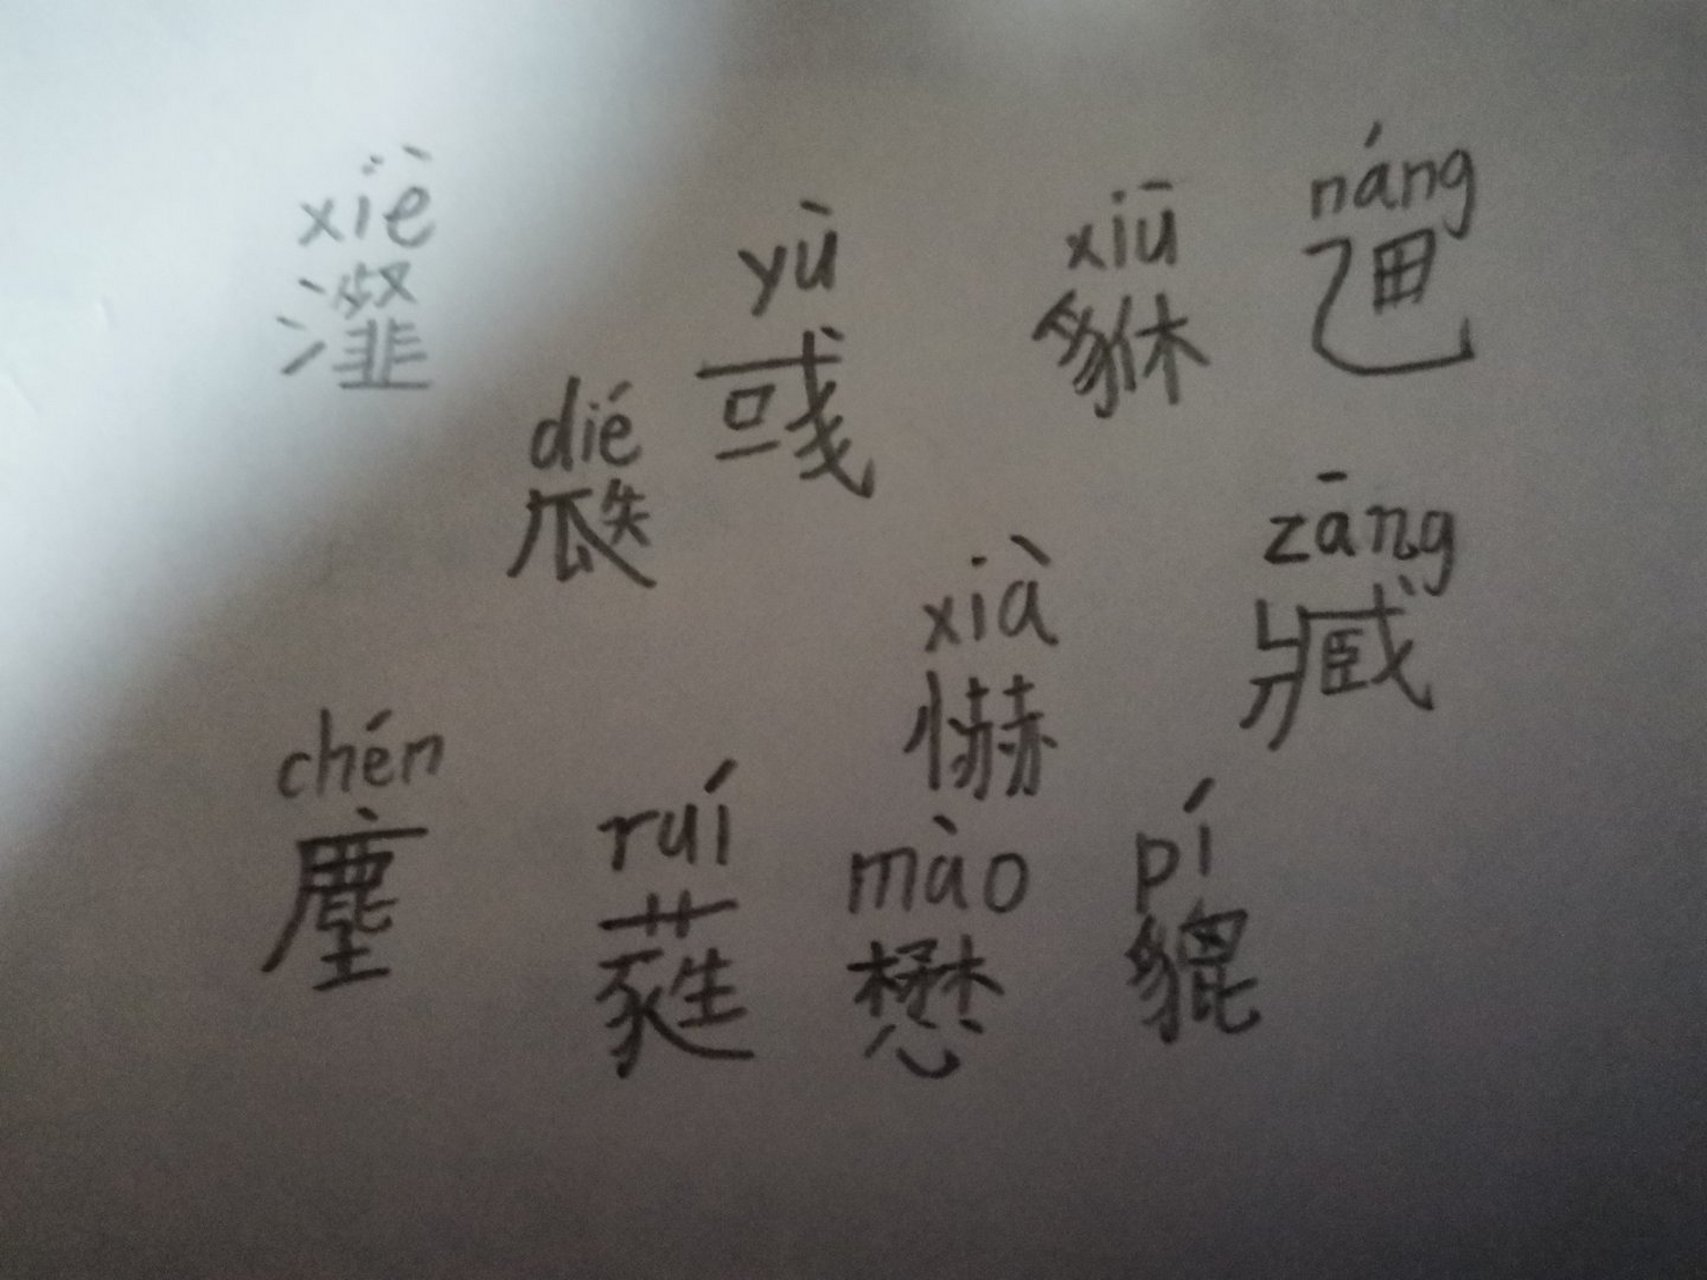 xiè
瀣
yù
彧
xiū
貅
náng
dié
瓞
zāng
臧
xià
chén
塵
ruí
蕤
mào
懋
pí
貔